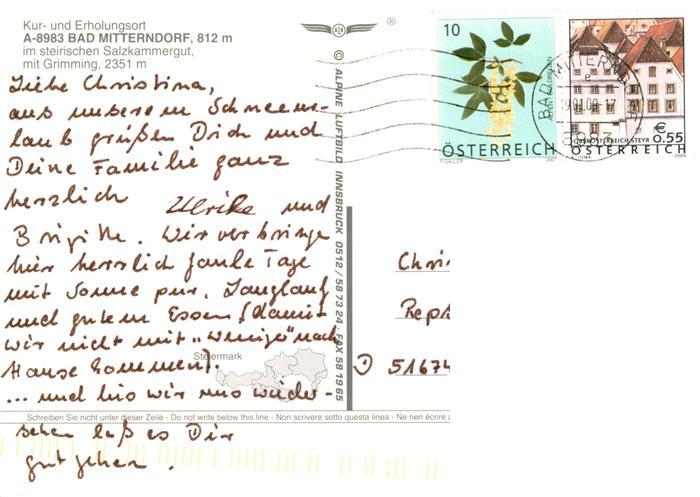 Kur- und Erholungsort
A-8983 BAD MITTERNDORF, 812 m
im steirischen Salzkammergut,
mit Grimming, 2351 m
Liebe Christina,
aus unserem Schneeur-
laub grüßen Dich und
Deine Familie ganz
herzlich Ulrike und
Brigitte. Wir verbringe
hier herrlich faule Tage
mit Sonne pur, Langlauf
und gutem Essen (damit
wir nicht mit "weniger" nach
Hause kommen).
... und bis wir uns wieder-
sehen laß es Dir
gut gehen.
Steiermark
Schreiben Sie nicht unter dieser Zeile - Do not write below this line - Non scrivere sotto questa linea - Ne rien écrire
© ALPINE LUFTBILD INNSBRUCK 0512 / 58 73 24 · FAX 58 19 85
®
10
ÖSTERREICH
2007
BAD MITTERNDORF
8983
€
0.55
OBERÖSTERREICH STEYR
ÖSTERREICH
2005
Chri
Repr
D 51674